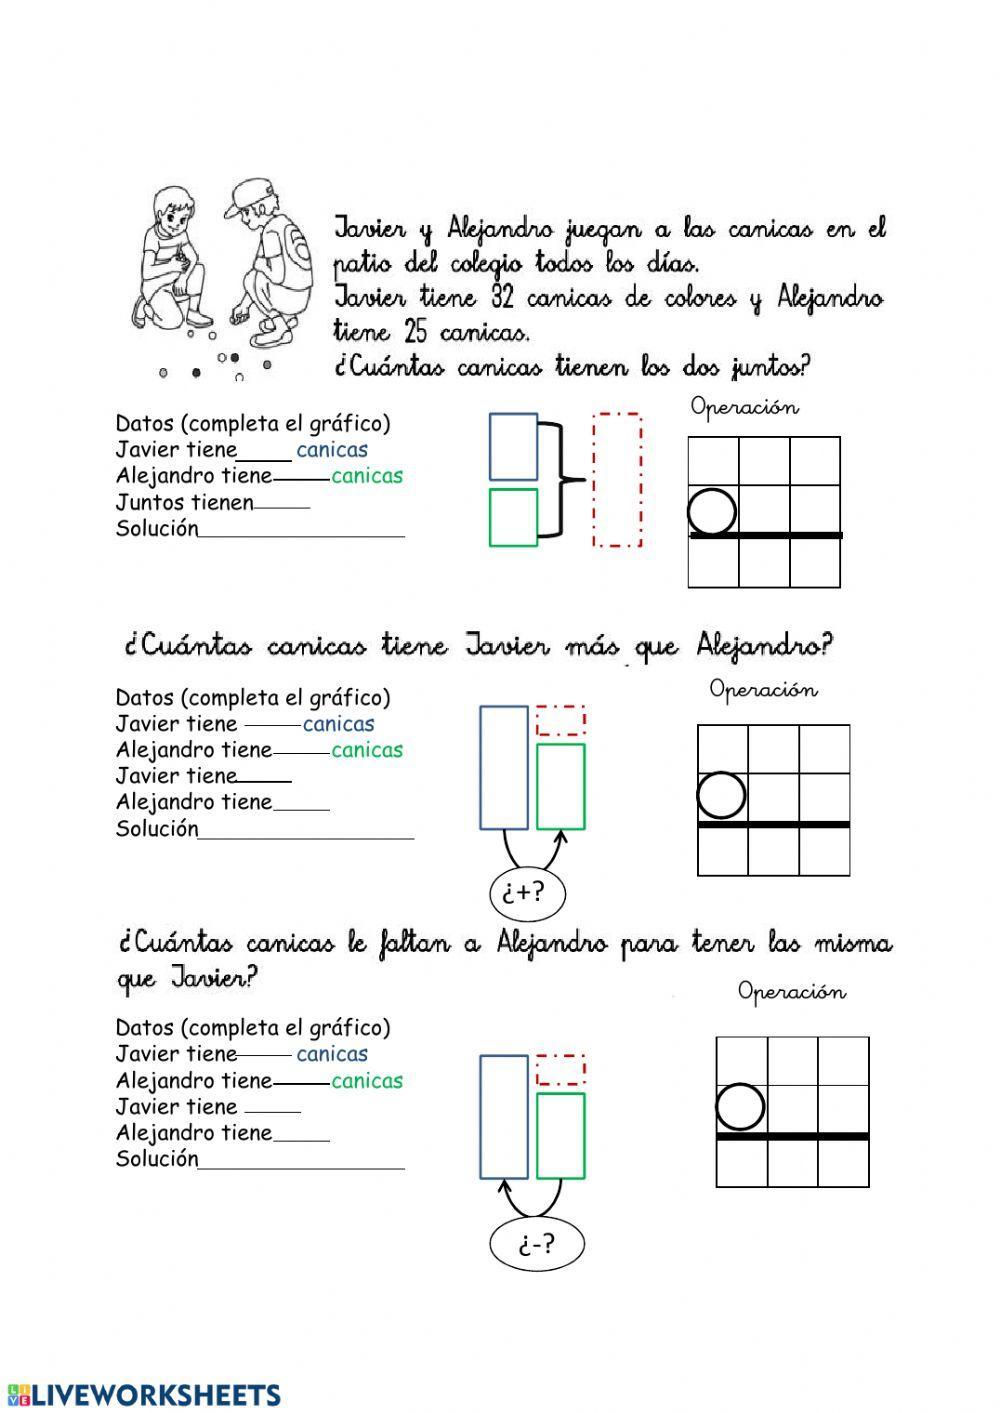 Javier y Alejandro juegan a las canicas en el
patio del colegio todos los días.
Javier tiene 32 canicas de colores y Alejandro
tiene 25 canicas.
¿Cuántas canicas tienen los dos juntos?
Operación
Datos (completa el gráfico)
Javier tiene_____ canicas
Alejandro tiene_____canicas
Juntos tienen_____
Solución__________________
¿Cuántas canicas tiene Javier más que Alejandro?
Operación
Datos (completa el gráfico)
Javier tiene _____canicas
Alejandro tiene_____canicas
Javier tiene_____
Alejandro tiene_____
Solución___________________
¿+?
¿Cuántas canicas le faltan a Alejandro para tener las misma
que Javier?
Operación
Datos (completa el gráfico)
Javier tiene_____ canicas
Alejandro tiene_____canicas
Javier tiene _____
Alejandro tiene_____
Solución__________________
¿-?
LIVE LIVEWORKSHEETS